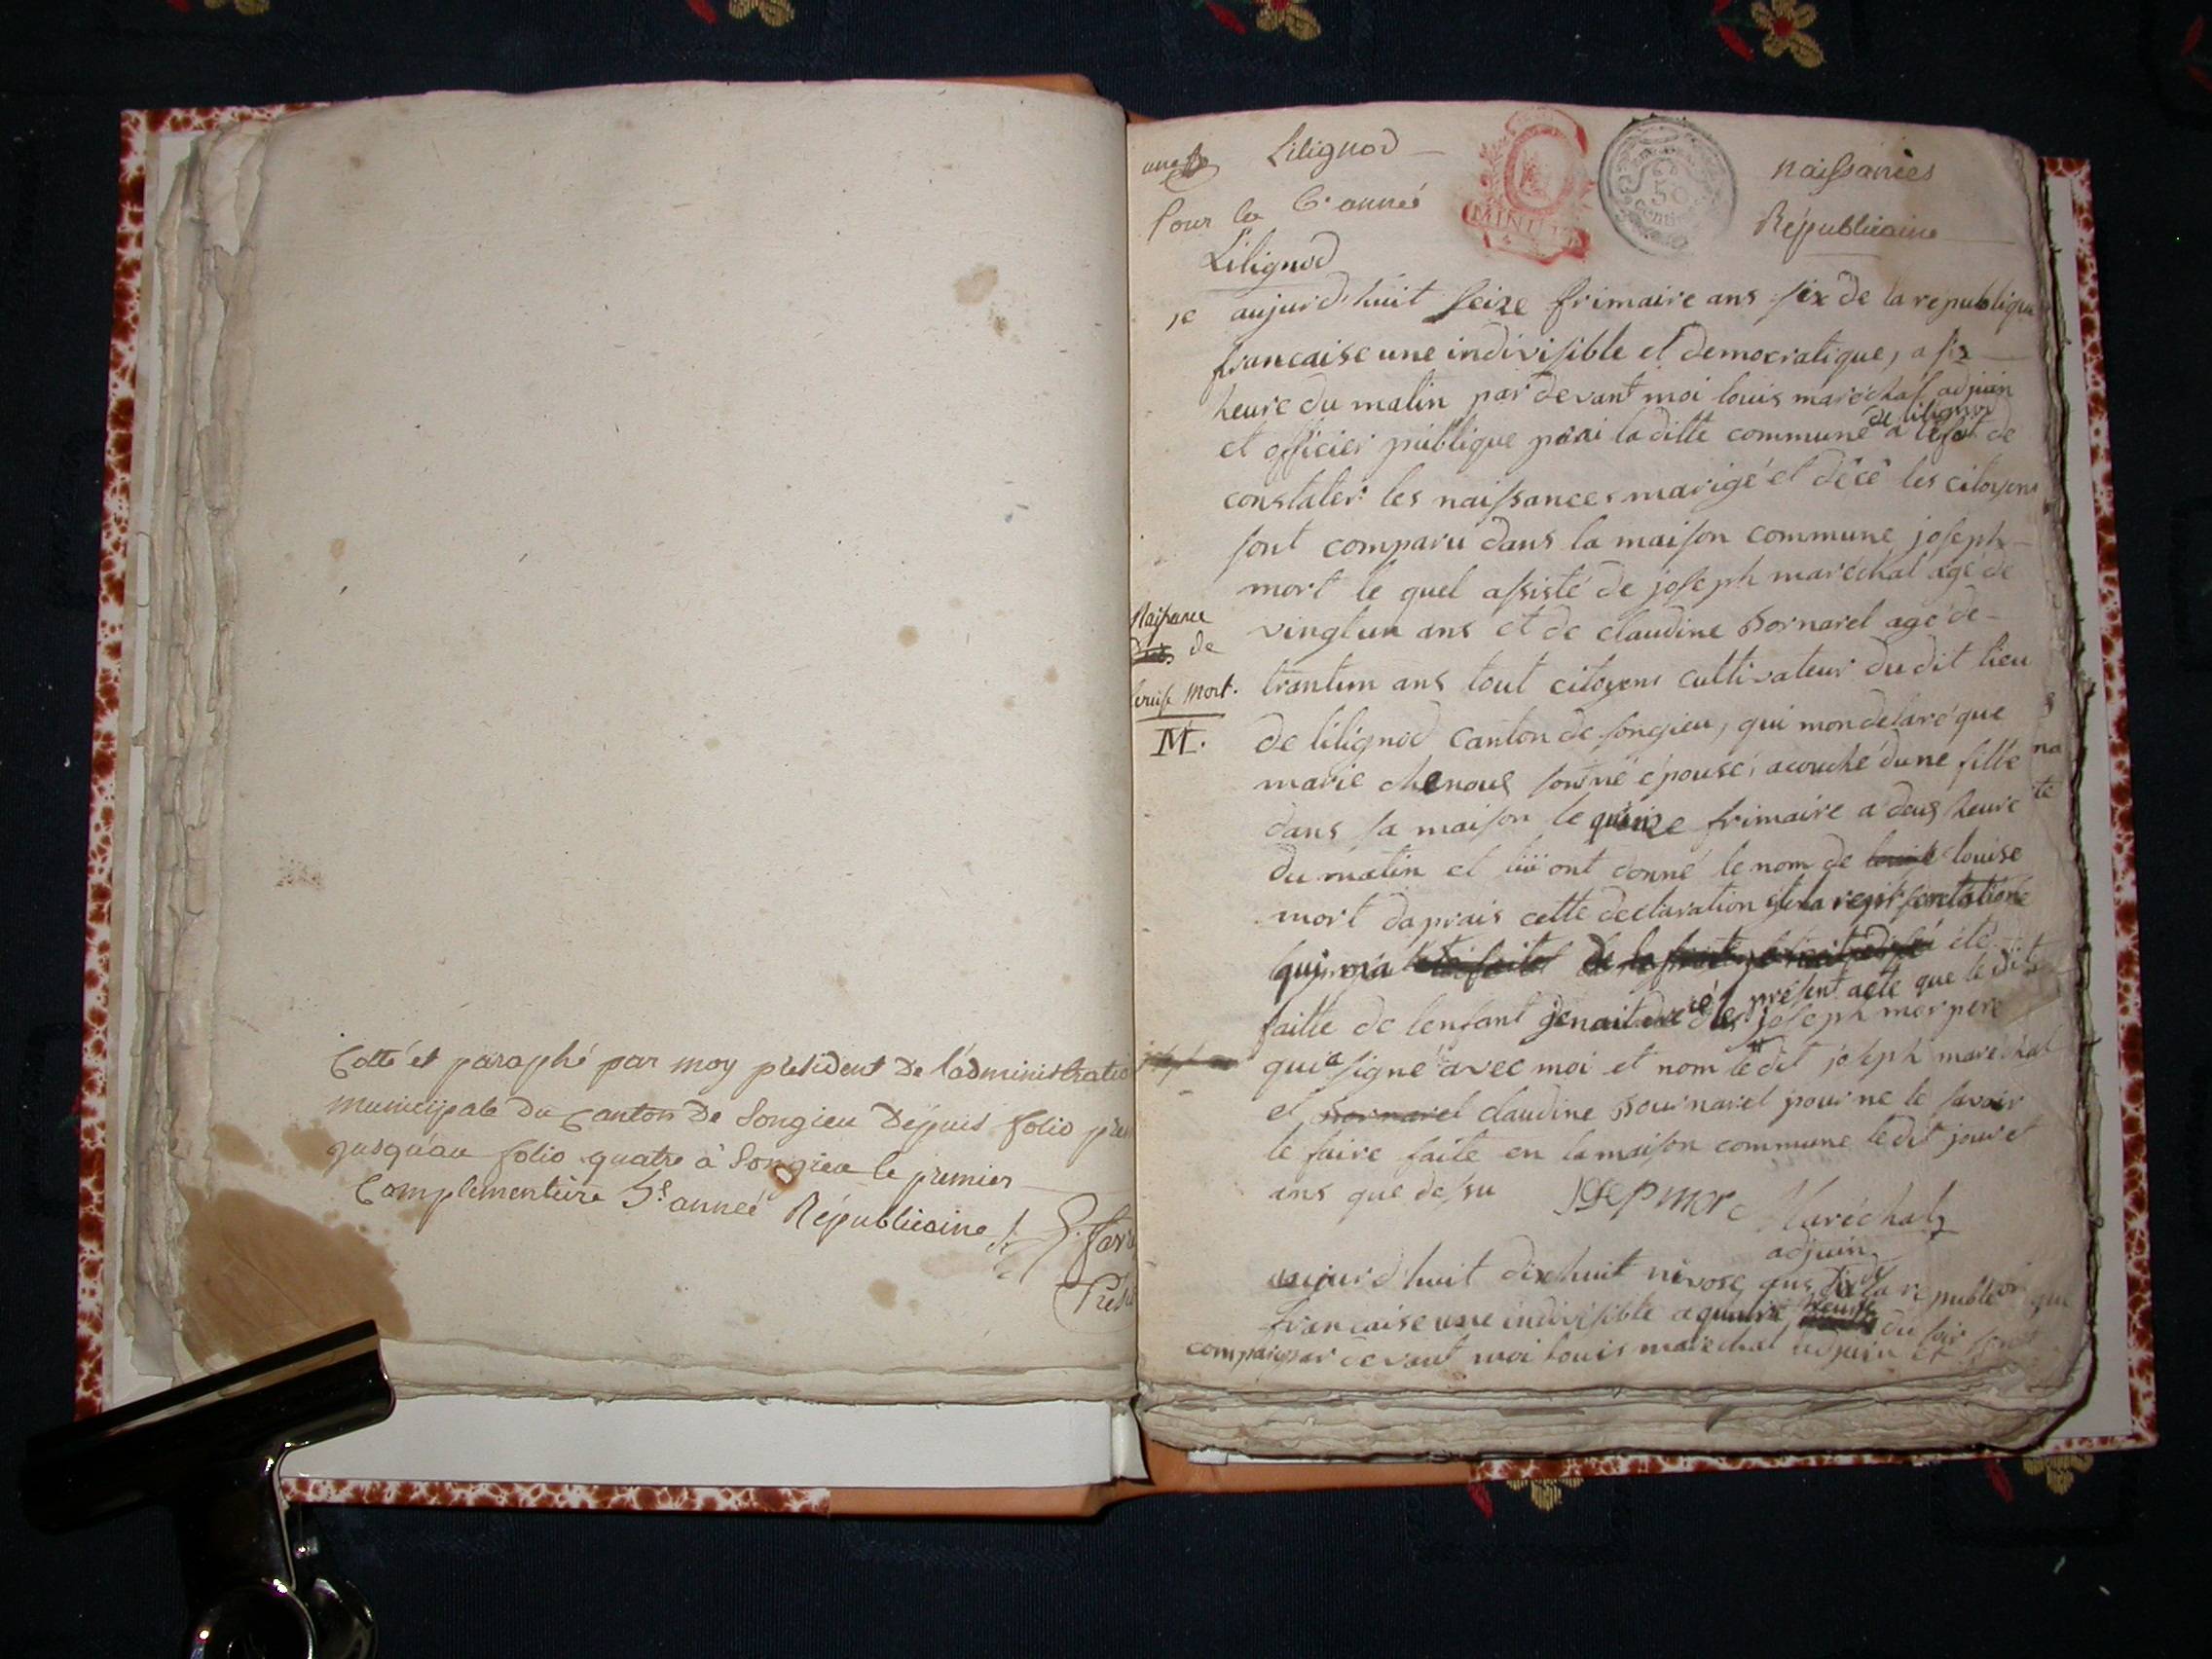 Cotté et paraphé par moy président de l'administratio
municipale du Canton de Songieu Depuis folio prem
jusqu'au folio quatre à Songieu le premier
Complementaire 5e année Républicaine
Prés
Lilignod naissances
Pour la 6e année Républicaine
MINUTE
50
Centi
Lilignod
1e aujourd'huit seize frimaire ans six de la republique
francaise une indivisible et democratique, a six
heure du matin par devant moi louis maréchal adjuin
et officier publique parmi laditte commune de lilignod a lefat de
constater les naissances marigé et décé les citoyens
sont comparu dans la maison commune joseph
mort le quel assisté de joseph maréchal agé de
vingtun ans et de claudine Bornarel agé de
trantun ans tout citoyens cultivateur du dit lieu
de lilignod canton de songieu, qui mon delaré que
marie chenoul épouse, acouché dune fille
dans sa maison le quinze frimaire a deus heure
du matin et lui ont donné le nom de louise
mort daprais cette declaration et la representatione
qui ma été
faitte de lenfant présent acte que le dit
joseph mor pere
qui a signé avec moi et nom le dit joseph maréchal
et bornarel claudine Bournarel pour ne le savoir
le faire faite en la maison commune le dit jour et
ans que dessu josep mor Maréchal
adjuin
Naissance
de
louise Mort.
M.
aujourd'huit dixhuit nivose ans six de la republique
francaise une indivisible a quatre heure du soir sont
par devant moi louis maréchal adjuin et